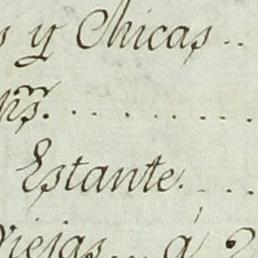 s y Chicas ..
rs. . . . . . . .
Estante. . . .
viejas... á 2